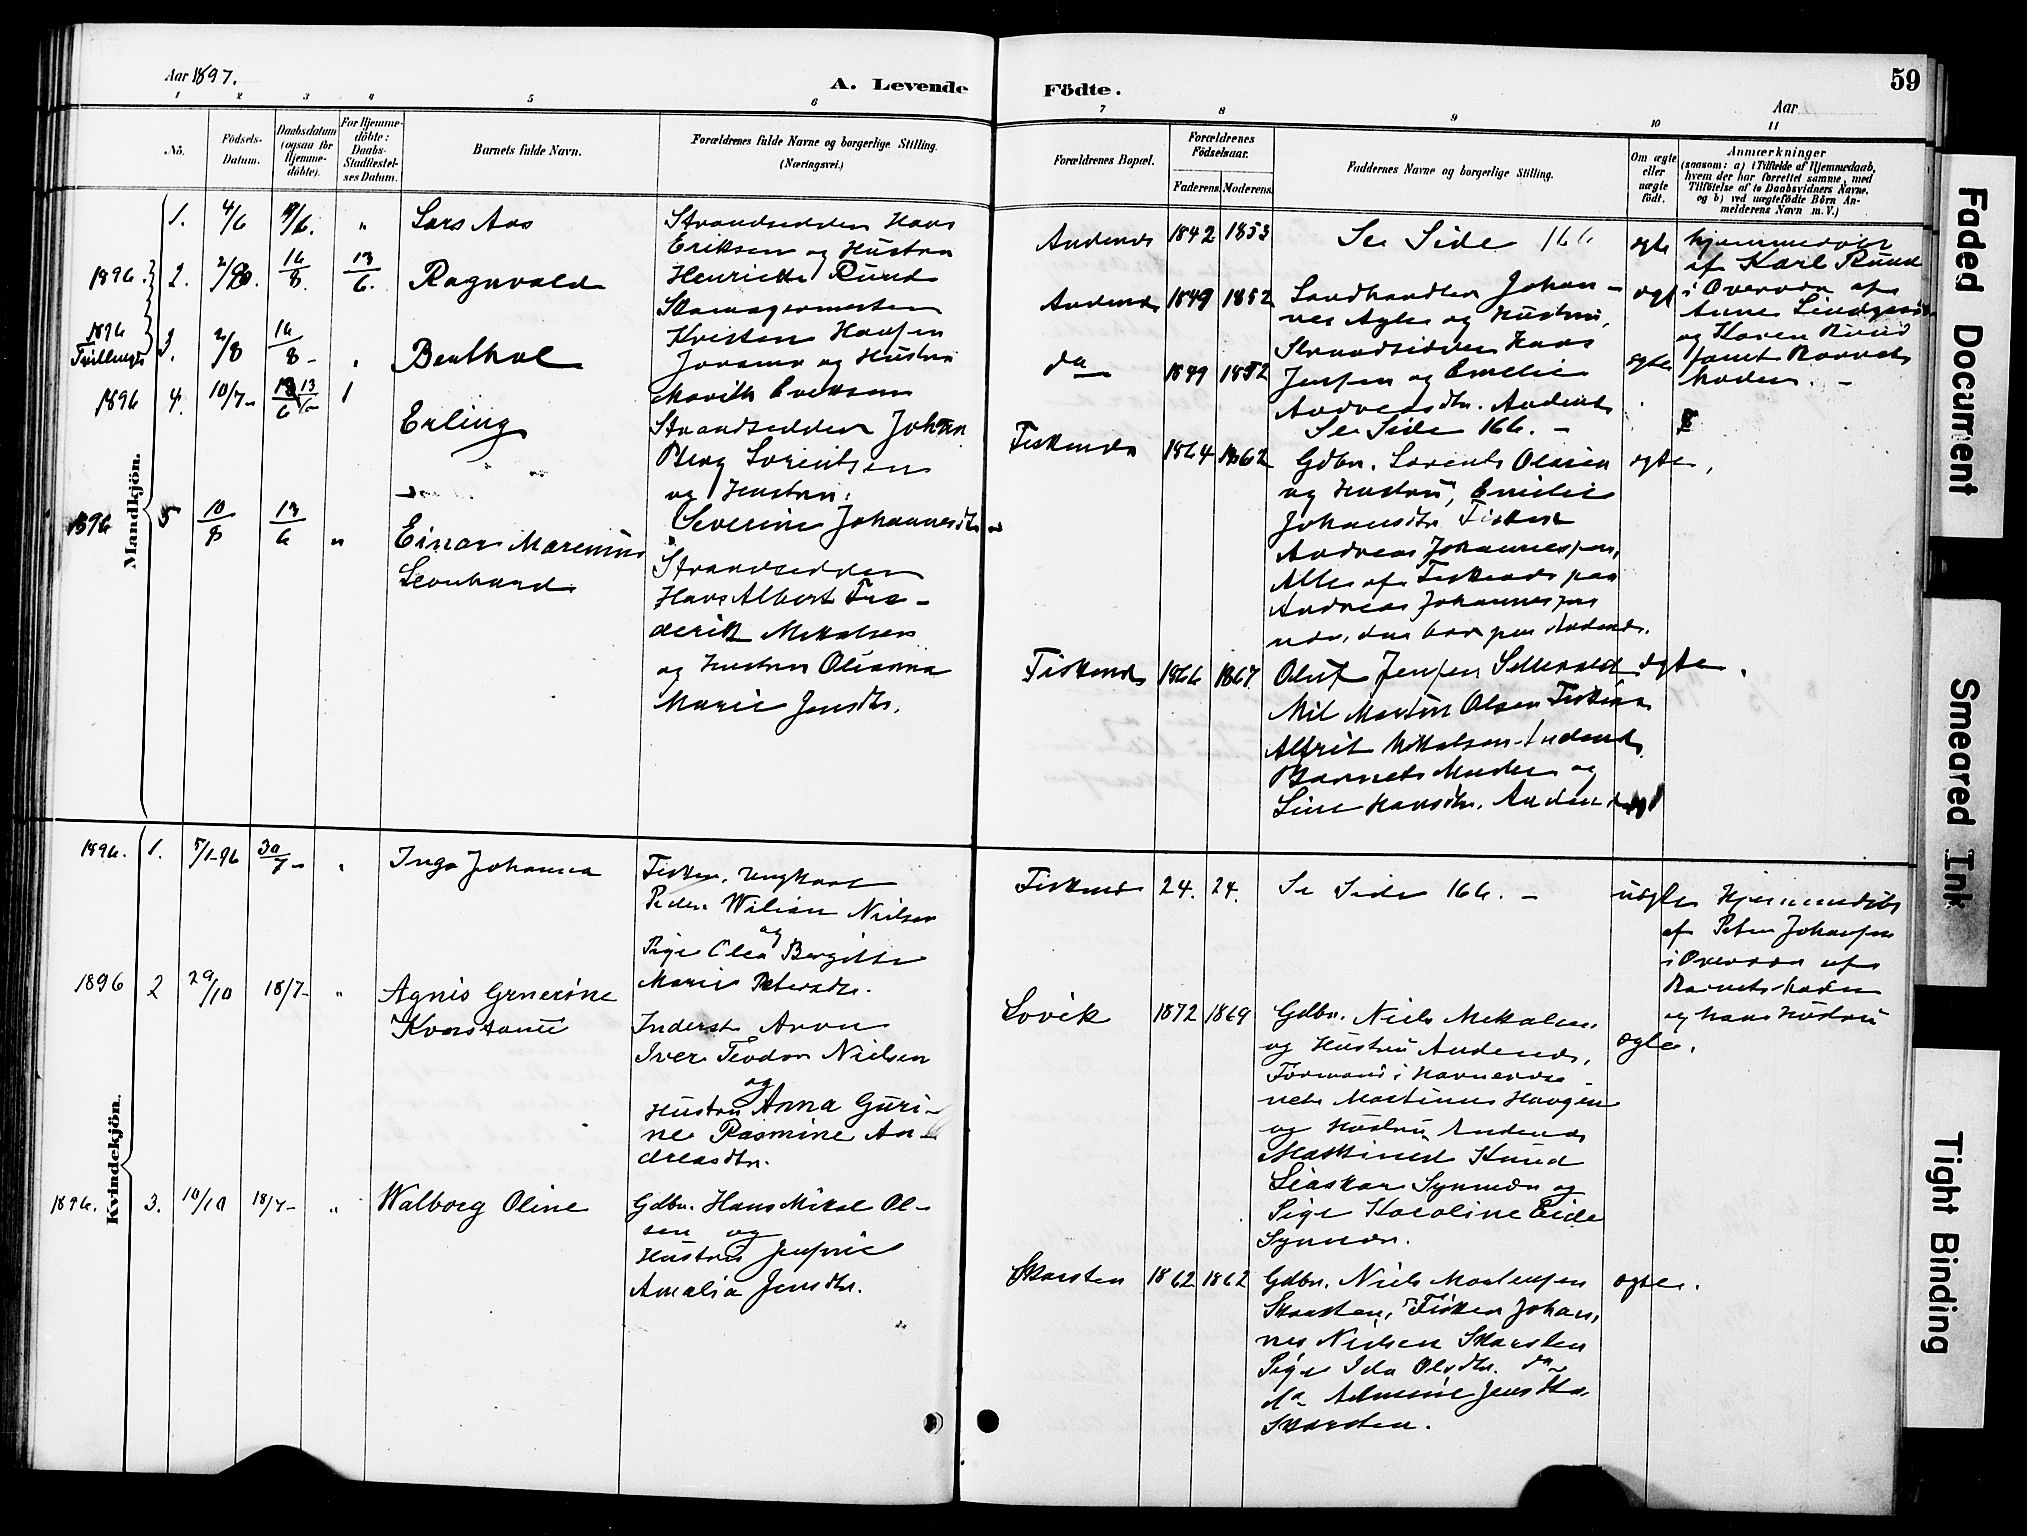 Aar 1897.
A. Levende Födte.
Aar
59
1 2 3 4 5 6 7 8 9 10 11
Nö.
Födsels-
Datum.
Daabsdatum
(ogsaa for
Hjemme-
döbte).
For Hjemme-
döbte:
Daabs-
Stadfæstel-
ses Datum.
Barnets fulde Navn.
Forældrenes fulde Navne og borgerlige Stilling.
(Næringsvei.)
Forældrenes Bopæl.
Forældrenes
Födselsaar.
Faderens. Moderens.
Faddernes Navne og borgerlige Stilling.
Om ægte
eller
uægte
födt.
Anmærkninger
(saasom: a) i Tilfælde af Hjemmedaab,
hvem der har forrettet samme, med
Tilföielse af to Daabsvidners Navne,
og b) ved uægtefödte Börn An-
melderens Navn m. V.)
Mandkjön.
1. 4/6 /6. "
Lars Aas
Strandsidder Hans
Eriksen og Hustru
Henriette Ruud
Andenes 1842 1853
Se Side 166
ægte
af Karl Ruud
i Overvær af
Anne
og Karen Ruud
samt Barnets
Moder. -
1896. 2. 16/8. 13/6.
Ragnvald
Kristen Hansen
og Hustru
Andenes 1849 1852
Landhandler Johan-
nes og Hustru,
Strandsidder Hans
Jensen og Emelie
Andreasdtr. Andenes
ægte
1896
Tvillinger 3. 2/8 16/8 -
Benthal
da 1849 1852
Se Side 166. -
ægte
1896 4. 10/7 - 13/6 1
Erling
Strandsidder Johan
Berg Lorentsen
og Hustru
Severine Johannesdtr
Fiskenes 1864 1862
Gdbr. Lorents Olsen
og Hustru, Emilie
Johansdtr Fiskenes
Andreas Johannessen,
Alle af Fiskenes paa
Andreas Johannessen
nær, der bor paa Andenes.
ægte,
1896 5 10/8 13/6 "
Einar Marenius
Leonhard
Strandsidder
Hans Albert Fre-
derik Mikalsen
og Hustru Olianna
Marie Jensdtr.
Fiskenes 1866 1867
Oluf Jensen
Martin Olsen Fiskenes
Alfrit Mikalsen Andenes
Barnets Moder og
Line Hansdtr. Andenes
ægte.
Kvindekjön.
1896. 1. 5/1-96 30/7 - "
Inga Johanna
Fisker, Ungkarl
Peder Wilian Nielsen
og
Pige Olea Bergitte
Marie Petersdtr.
Fiskenes 24. 24.
Se Side 166. -
uægte
Hjemmedöbt
af Peter Johansen
i Overvær af
Barnets Moder
og hans Hustru
1896 2 29/10 18/7 - "
Agnis Grnerine
Konstanse
Inderst Aron
Iver Teodor Nielsen
og
Hustru Anna Guri-
ne Rasmine An-
dreasdtr.
Lovik 1872 1869
Gdbr. Niels Mikalsen
og Hustru Andenes,
Formand i Havnevæse-
net Martinus Haugen
og Hustru Andenes
Maskinist Knud
Synnæs og
Pige Karoline Eide
Synnæs.
ægte.
1896. 3. 10/10 18/7 - "
Walborg Oline
Gdbr. Hans Mikal Ol-
sen og
Hustru Jensine
Amalia Jensdtr.
Skarsten 1862 1862
Gdbr. Niels Mortensen
Skarsten, Fisker Johan-
nes Nielsen Skarsten
Pige Ida Olsdtr. da
da Jensdtr.
Skarsten.
ægte.
Faded Document
Smeared Ink
Tight Binding